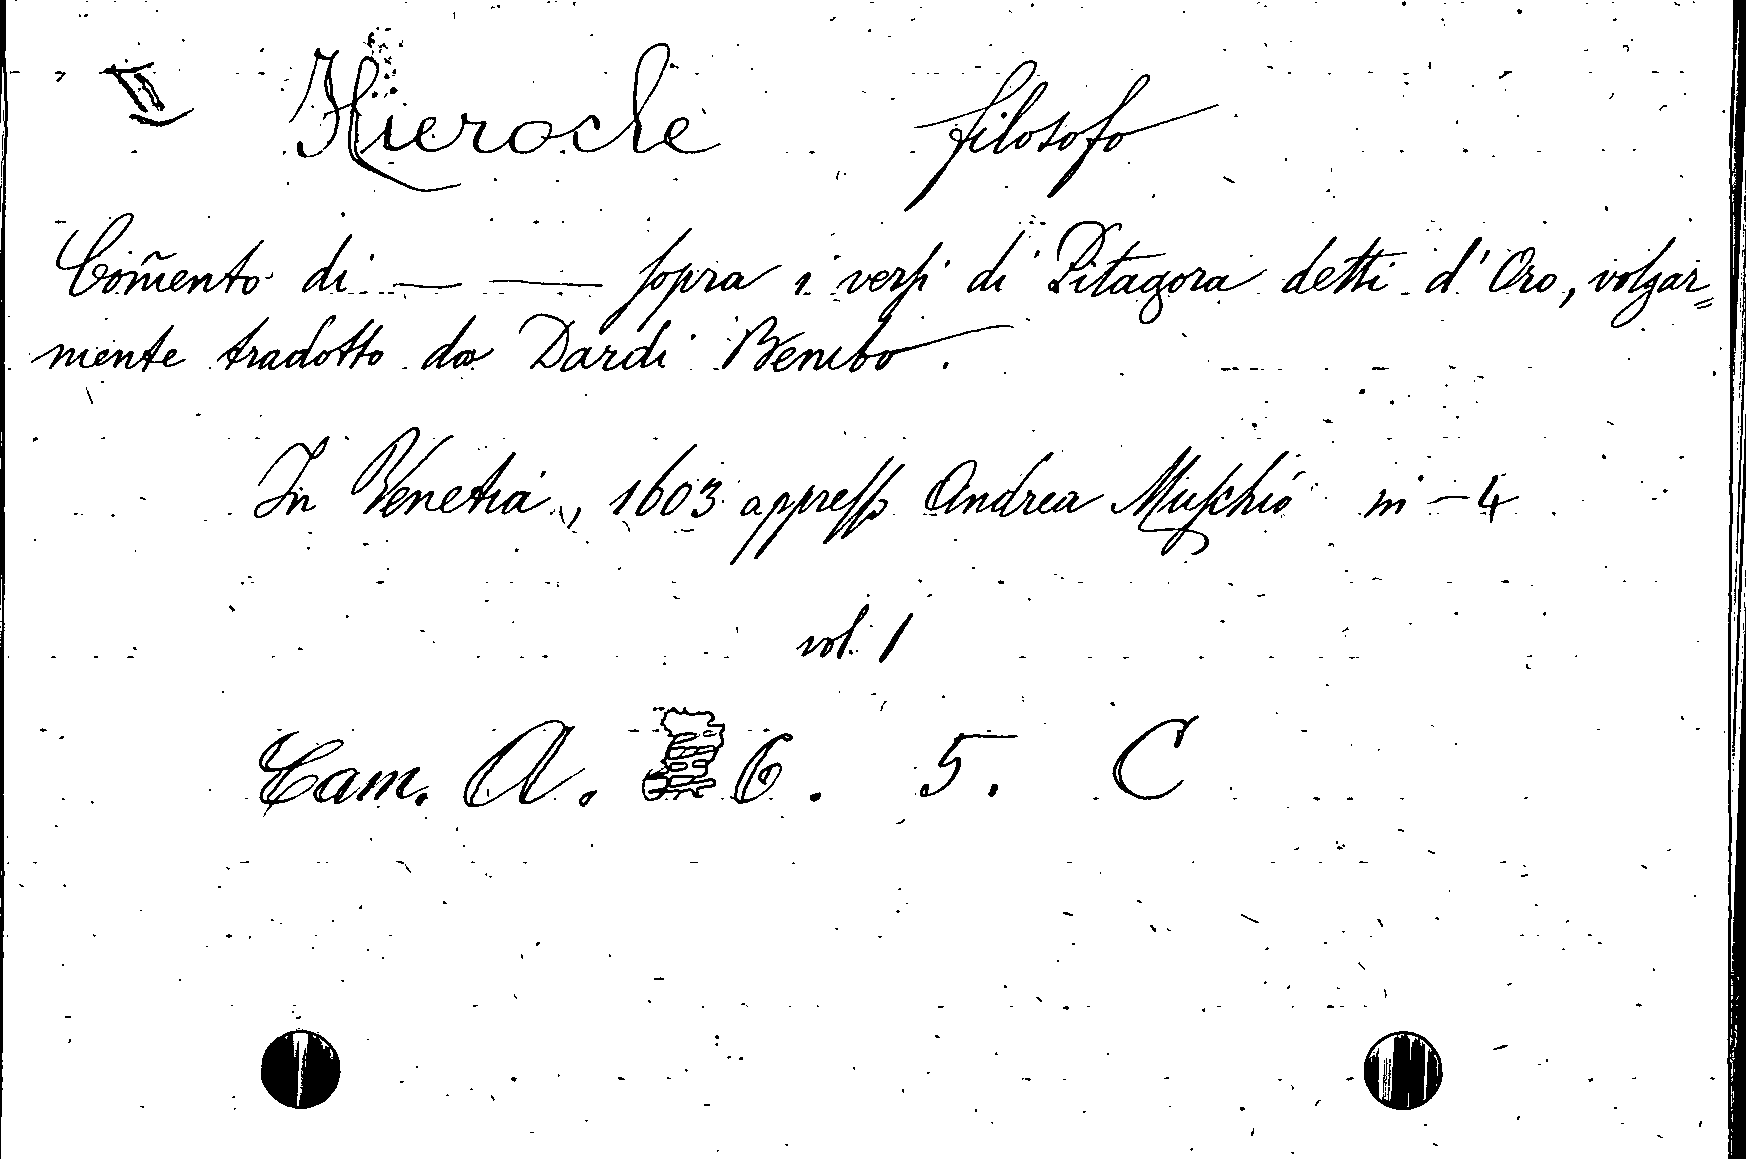 II Hierocle filosofo
Com̃ento di — — sopra i versi di Pitagora detti d'Oro, volgar=
mente tradotto da Dardi Bembo.
In Venetia, 1603 appresso Andrea Muschio in-4
vol. 1
Cam. A. 6. 5. C